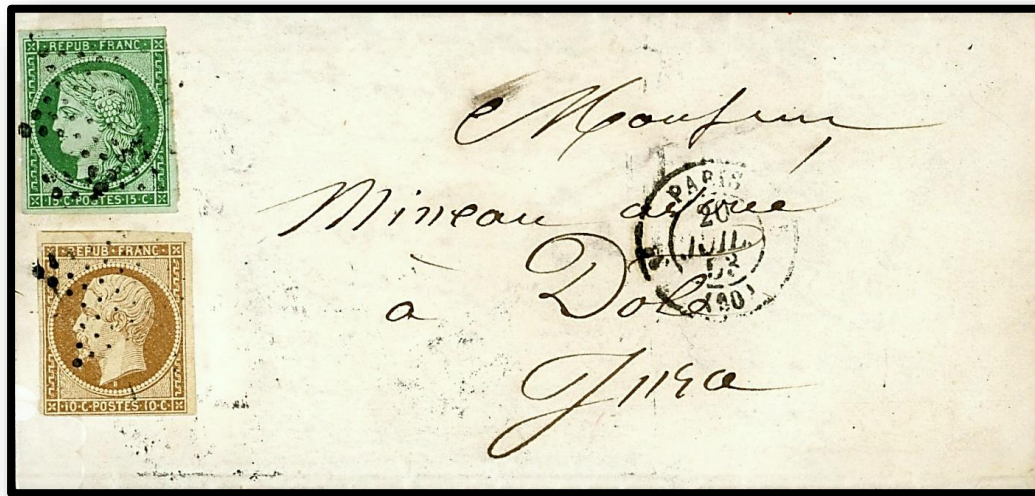 REPUB FRANC
15 C POSTES 15 C
REPUB FRANC
10 C POSTES 10 C
Monsieur
Mineau avoué
à Dole
Jura
PARIS
20
JUIL
53
(60)